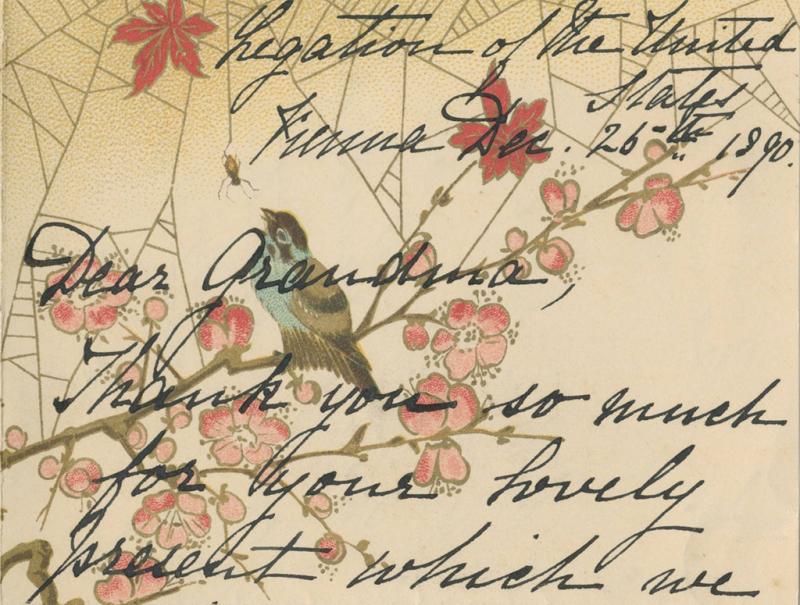 Legation of the United
States
Vienna Dec. 26th 1890.
Dear Grandma,
Thank you so much
for your lovely
present which we